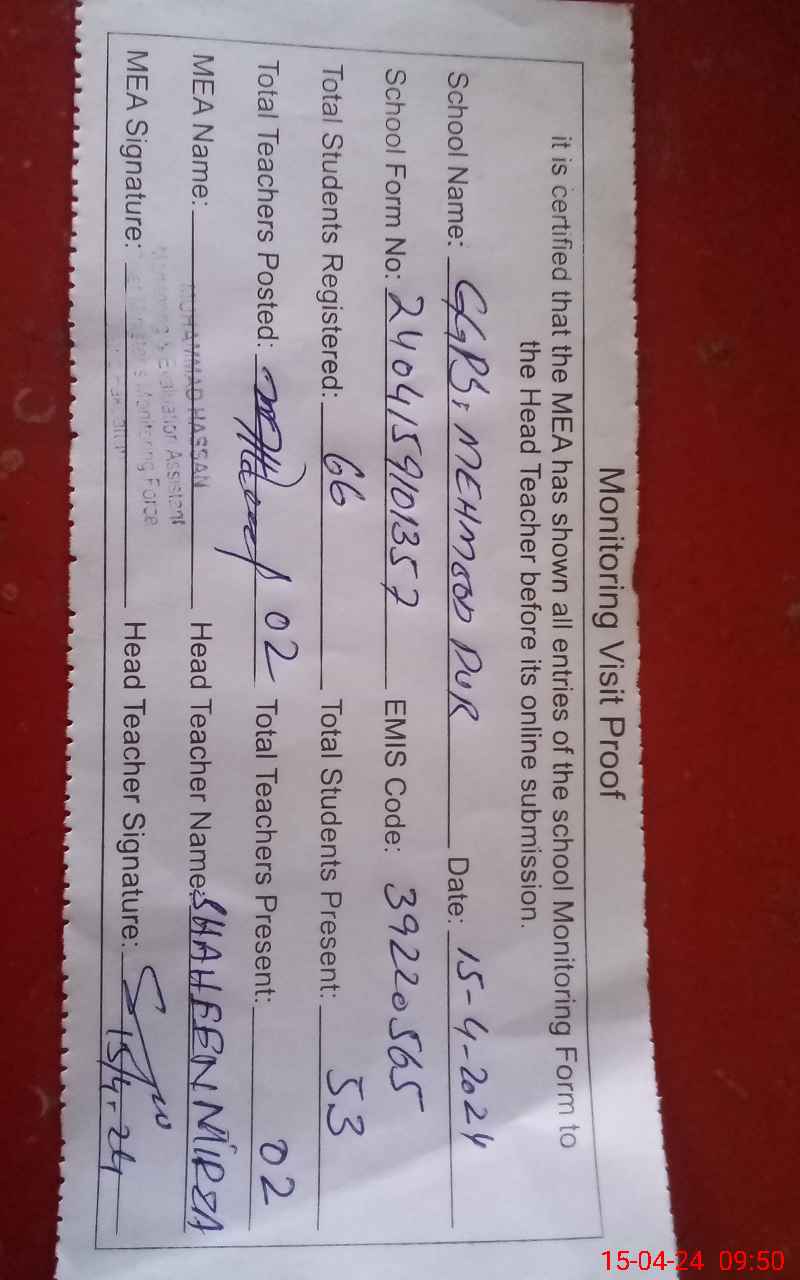 Monitoring Visit Proof
it is certified that the MEA has shown all entries of the school Monitoring Form to
the Head Teacher before its online submission.
School Name: GGPS, MEHMOOD PUR Date: 15-4-2024
School Form No: 2404159101357 EMIS Code: 39220565
Total Students Registered: 66 Total Students Present: 53
Total Teachers Posted: 02 Total Teachers Present: 02
MEA Name: MUHAMMAD HASSAN Head Teacher Name: SHAHEEN MIRZA
Monitoring & Evaluation Assistant
Monitoring Force
MEA Signature: Head Teacher Signature:
15/4-24
15-04-24 09:50